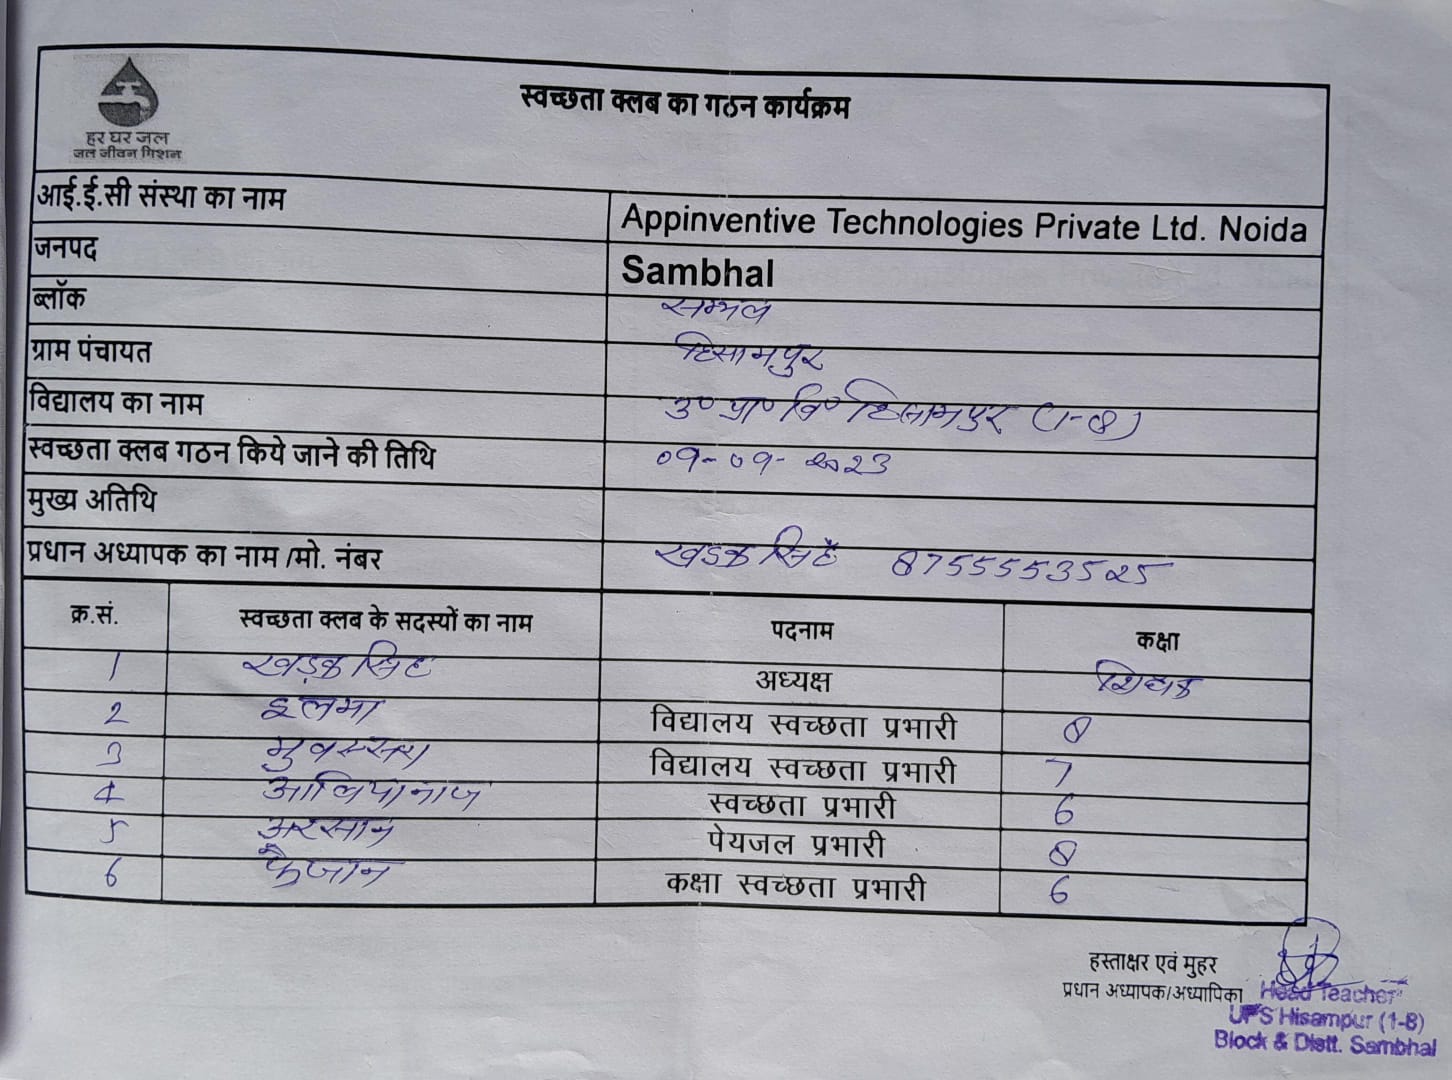 हर घर जल
जल जीवन मिशन
स्वच्छता क्लब का गठन कार्यक्रम
आई.ई.सी संस्था का नाम Appinventive Technologies Private Ltd. Noida
जनपद Sambhal
ब्लॉक सम्भल
ग्राम पंचायत हिसामपुर
विद्यालय का नाम उ० प्रा० वि० हिसामपुर (1-8)
स्वच्छता क्लब गठन किये जाने की तिथि 09-09-2023
मुख्य अतिथि
प्रधान अध्यापक का नाम /मो. नंबर खडक सिंह 8755553525
क्र.सं. स्वच्छता क्लब के सदस्यों का नाम पदनाम कक्षा
1 खड़क सिंह अध्यक्ष शिक्षक
2 इलमा विद्यालय स्वच्छता प्रभारी 8
3 विद्यालय स्वच्छता प्रभारी 7
4 आलियानाज स्वच्छता प्रभारी 6
5 अरसान पेयजल प्रभारी 8
6 फैजान कक्षा स्वच्छता प्रभारी 6
हस्ताक्षर एवं मुहर
प्रधान अध्यापक/अध्यापिका Head Teacher
UPS Hisampur (1-8)
Block & Distt. Sambhal